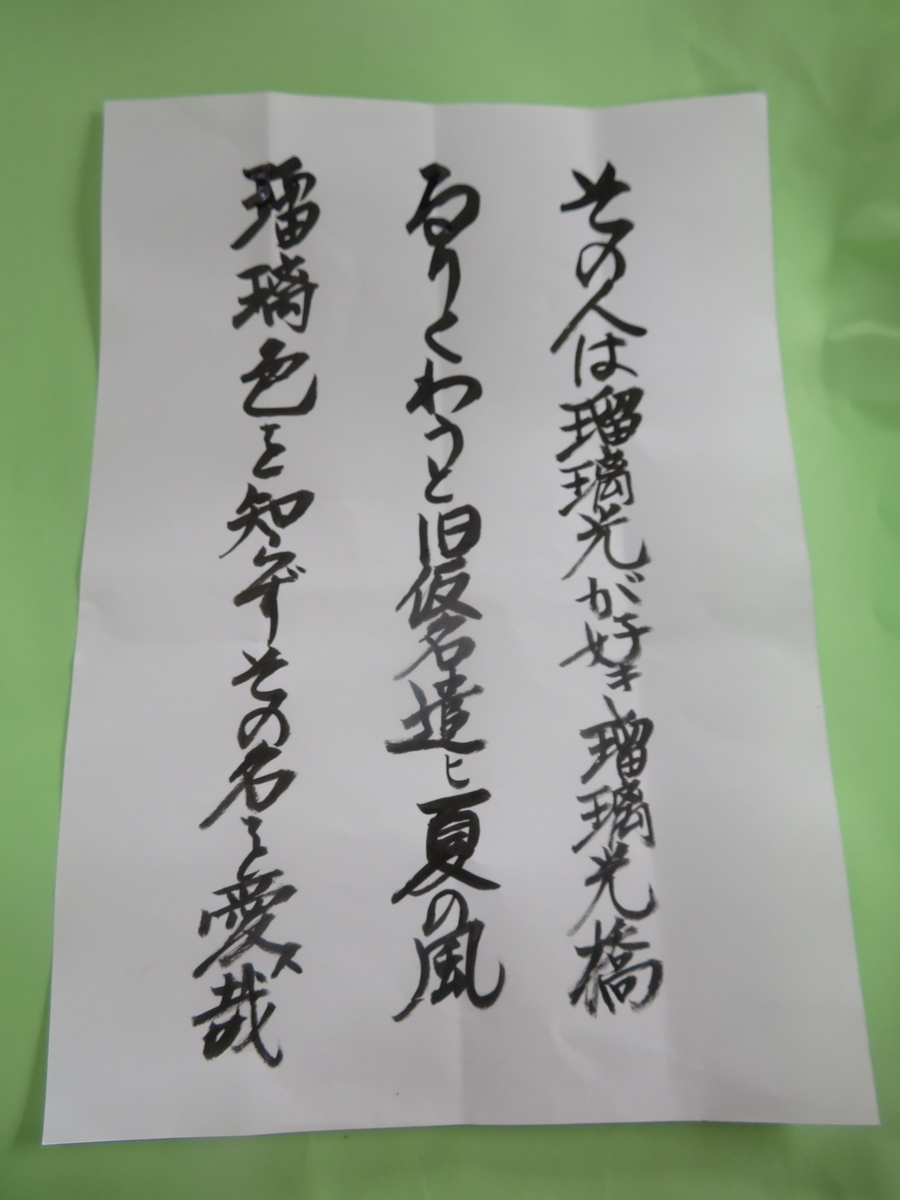 その人は瑠璃光が好き瑠璃光橋
るりくわうと旧仮名遣ヒ夏の風
瑠璃色を知らずその名を愛ス哉